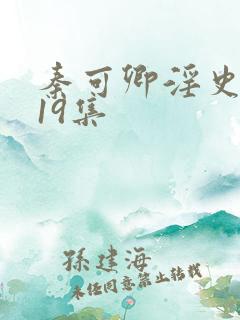 秦可卿淫史
19集
孫建海
未经同意禁止转载